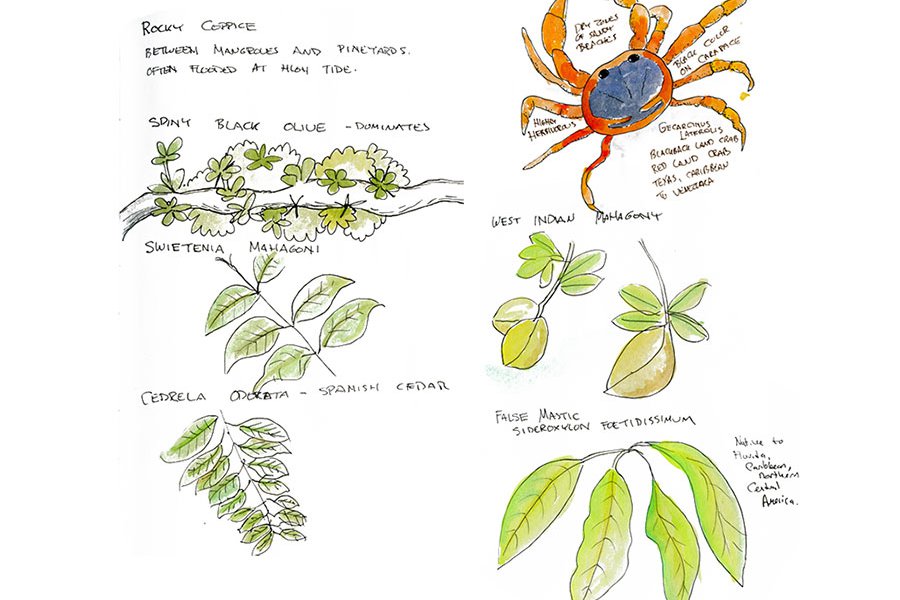 ROCKY COPPICE
BETWEEN MANGROVES AND PINEYARDS.
OFTEN FLOODED AT HIGH TIDE.
SPINY BLACK OLIVE - DOMINATES
SWIETENIA MAHAGONI
CEDRELA ODORATA - SPANISH CEDAR
DRY ZONES
OF SANDY
BEACHES
BLACK COLOR
ON CARAPACE
HIGHLY
HERBIVOROUS
GECARCINUS
LATERALIS
BLACKBACK LAND CRAB
RED LAND CRAB
TEXAS, CARIBBEAN
TO VENEZUELA
WEST INDIAN MAHAGONY
FALSE MASTIC
SIDEROXYLON FOETIDISSIMUM
Native to
Florida,
Caribbean,
northern
Central
America.